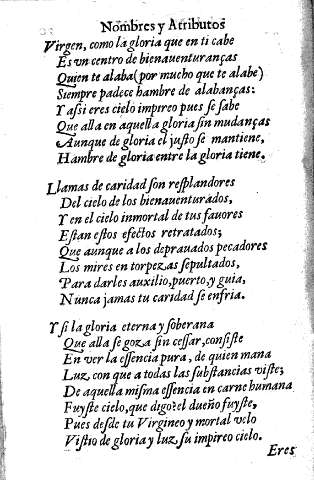 Nombres y Atributos
Virgen, como la gloria que en ti cabe
Es vn centro de bienauenturanças
Quien te alaba (por mucho que te alabe)
Siempre padece hambre de alabanças:
Y aſsi eres cielo impireo pues ſe ſabe
Que alla en aquella gloria ſin mudanças
Aunque de gloria el juſto ſe mantiene,
Hambre de gloria entre la gloria tiene.
Llamas de caridad ſon reſplandores
Del cielo de los bienauenturados,
Y en el cielo inmortal de tus fauores
Eſtan eſtos efectos retratados;
Que aunque a los deprauados pecadores
Los mires en torpezas ſepultados,
Para darles auxilio, puerto, y guia,
Nunca jamas tu caridad ſe enfria.
Y ſi la gloria eterna y ſoberana
Que alla ſe goza ſin ceſſar, conſiſte
En ver la eſſencia pura, de quien mana
Luz con que a todas las ſubſtancias viſte;
De aquella miſma eſſencia en carne humana
Fuyſte cielo, que digo? el dueño fuyſte,
Pues deſde tu Virgineo y mortal velo
Viſtio de gloria y luz ſu impireo cielo.
Eres